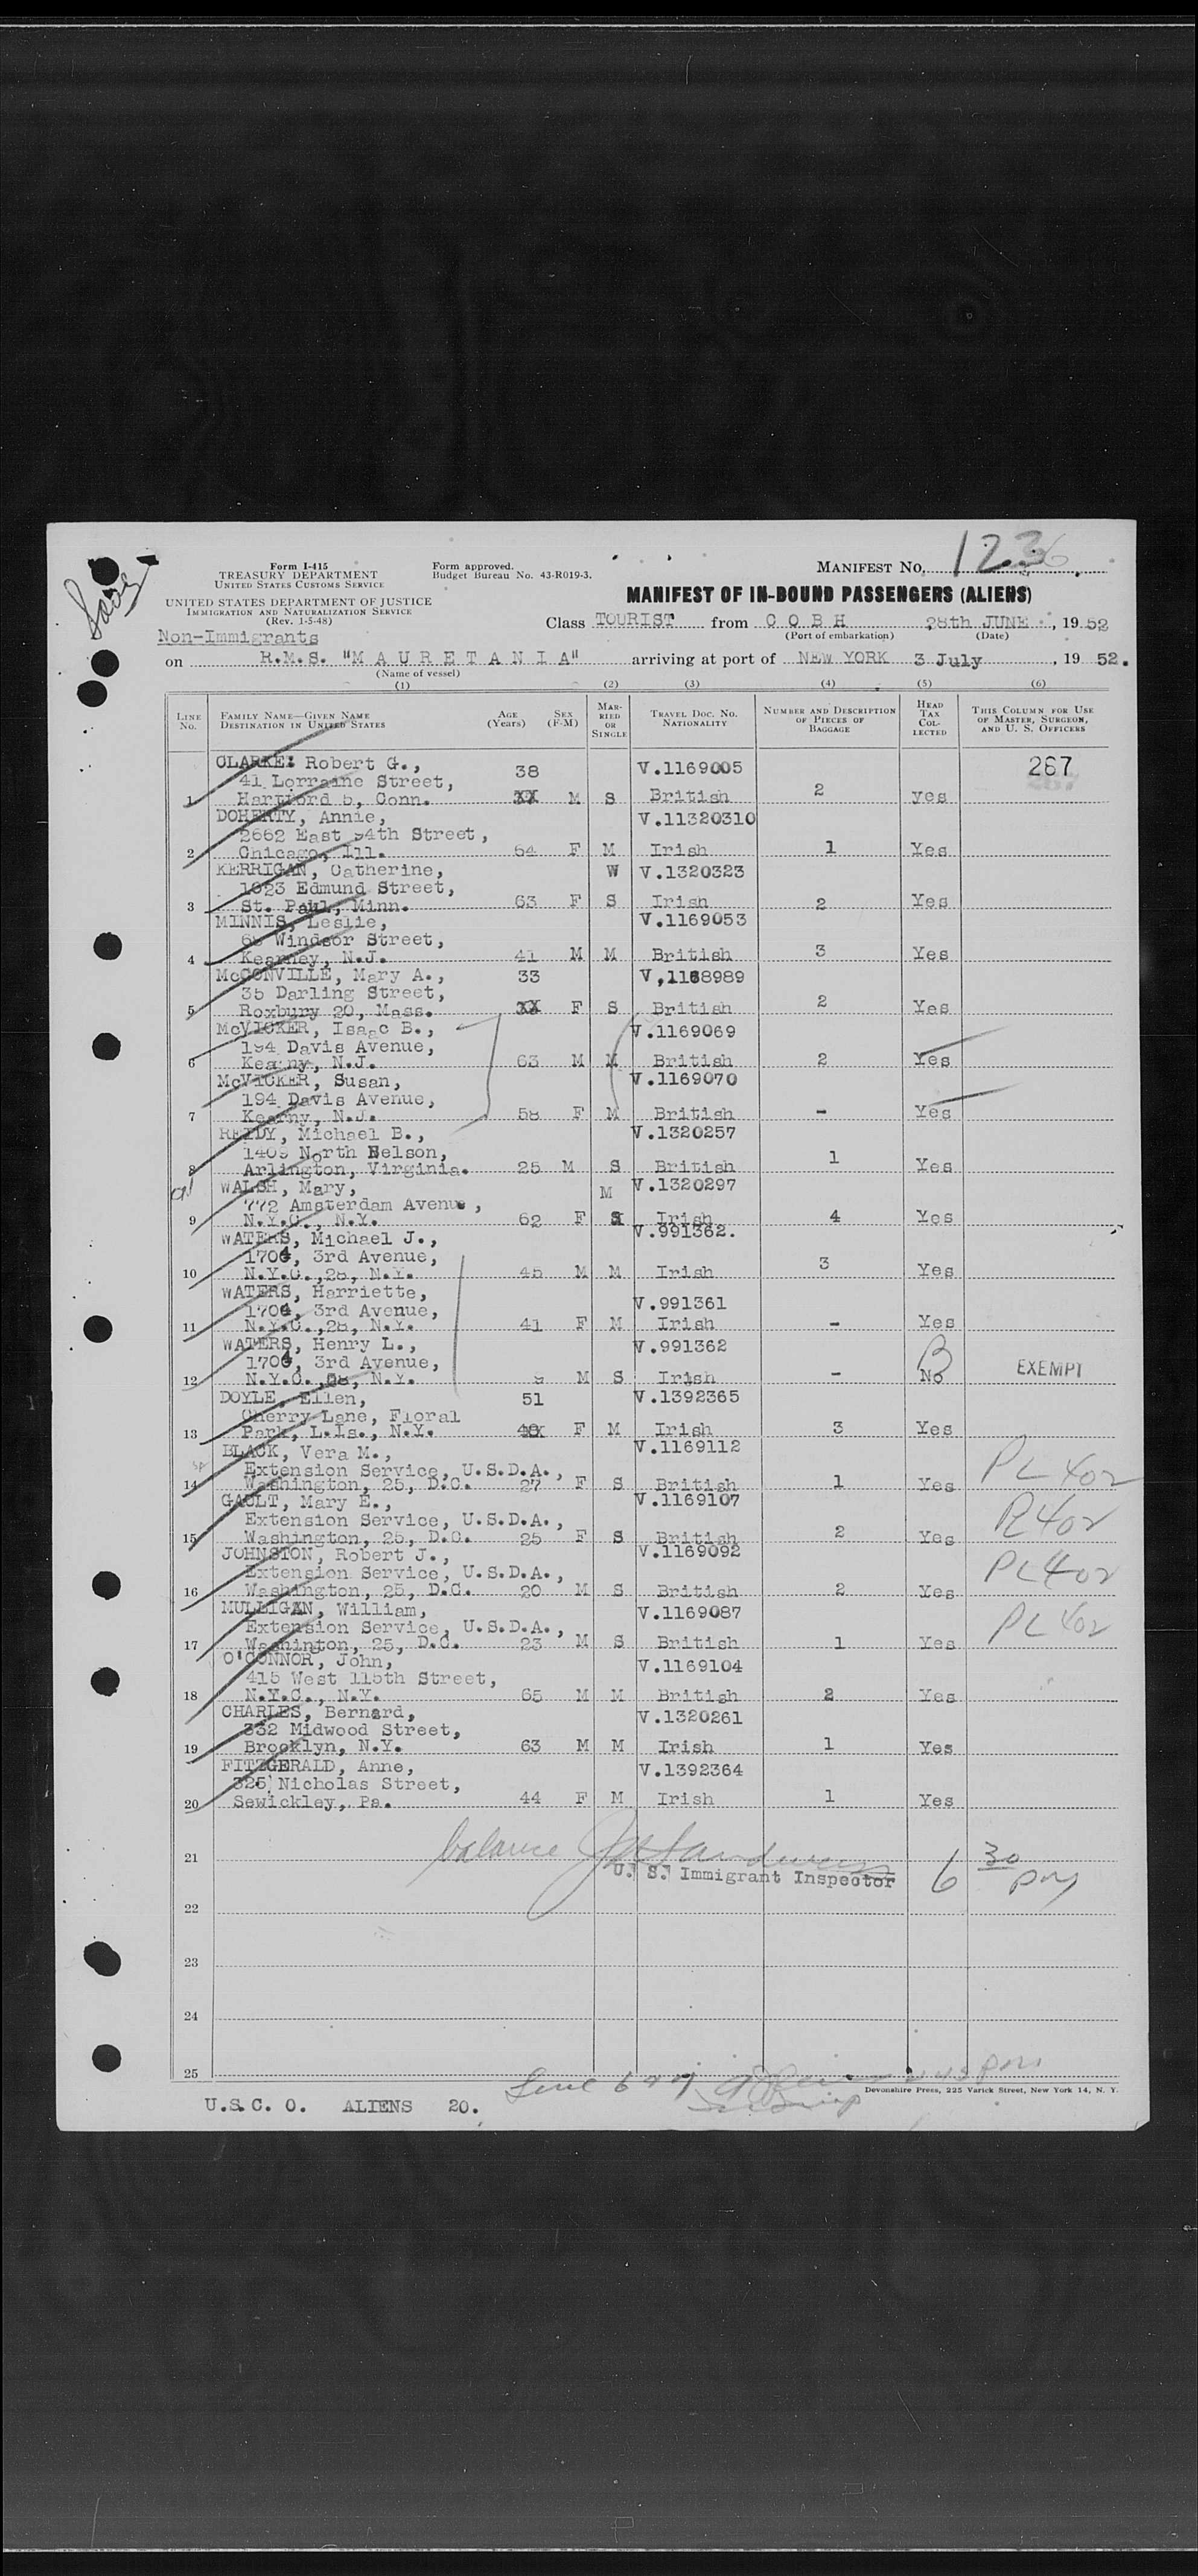 Form I-415
TREASURY DEPARTMENT
UNITED STATES CUSTOMS SERVICE
Form approved.
Budget Bureau No. 43-R019-3.
MANIFEST No. 1236
UNITED STATES DEPARTMENT OF JUSTICE
IMMIGRATION AND NATURALIZATION SERVICE
(Rev. 1-5-48)
MANIFEST OF IN-BOUND PASSENGERS (ALIENS)
Non-Immigrants
Class TOURIST from C O B H 28th JUNE, 1952
(Port of embarkation) (Date)
on R.M.S. "M A U R E T A N I A" arriving at port of NEW YORK 3 July, 1952.
(Name of vessel)
(1) (2) (3) (4) (5) (6)
LINE No. FAMILY NAME—GIVEN NAME DESTINATION IN UNITED STATES AGE (Years) SEX (F-M) MARRIED OR SINGLE TRAVEL DOC. No. NATIONALITY NUMBER AND DESCRIPTION OF PIECES OF BAGGAGE HEAD TAX COLLECTED THIS COLUMN FOR USE OF MASTER, SURGEON, AND U. S. OFFICERS
CLARKE: Robert G., 38 V.1169005 267
41 Lorraine Street,
1 Hartford 5, Conn. XX M S British 2 yes
DOHERTY, Annie, V.11320310
2662 East 94th Street,
2 Chicago, Ill. 64 F M Irish 1 Yes
KERRIGAN, Catherine, W V.1320323
1823 Edmund Street,
3 St. Paul, Minn. 63 F S Irish 2 Yes
MINNIS, Leslie, V.1169053
65 Windsor Street,
4 Kearney, N.J. 41 M M British 3 Yes
McCONVILLE, Mary A., 33 V,1168989
35 Darling Street,
5 Roxbury 20, Mass. XX F S British 2 Yes
McVICKER, Isaac B., V.1169069
194 Davis Avenue,
6 Kearny, N.J. 63 M M British 2 Yes
McVICKER, Susan, V.1169070
194 Davis Avenue,
7 Kearny, N.J. 58 F M British - Yes
REIDY, Michael B., V.1320257
1409 North Nelson,
8 Arlington, Virginia. 25 M S British 1 Yes
WALSH, Mary, M V.1320297
772 Amsterdam Avenue,
9 N.Y.C., N.Y. 62 F S Irish 4 Yes
WATERS, Michael J., V.991362.
1704, 3rd Avenue,
10 N.Y.C.,28, N.Y. 45 M M Irish 3 Yes
WATERS, Harriette, V.991361
1704, 3rd Avenue,
11 N.Y.C.,28, N.Y. 41 F M Irish - Yes
WATERS, Henry L., V.991362
1704, 3rd Avenue,
12 N.Y.C.,28, N.Y. 9 M S Irish - No EXEMPT
DOYLE, Ellen, 51 V.1392365
Cherry Lane, Floral
13 Park, L.Is., N.Y. F M Irish 3 Yes
BLACK, Vera M., V.1169112
Extension Service, U.S.D.A.,
14 Washington, 25, D.C. 27 F S British 1 Yes PL 402
GAULT, Mary E., V.1169107
Extension Service, U.S.D.A.,
15 Washington, 25, D.C. 25 F S British 2 Yes PL 402
JOHNSTON, Robert J., V.1169092
Extension Service, U.S.D.A.,
16 Washington, 25, D.C. 20 M S British 2 Yes PL 402
MULLIGAN, William, V.1169087
Extension Service, U.S.D.A.,
17 Washington, 25, D.C. 23 M S British 1 Yes PL 402
O'CONNOR, John, V.1169104
415 West 115th Street,
18 N.Y.C., N.Y. 65 M M British 2 Yes
CHARLES, Bernard, V.1320261
332 Midwood Street,
19 Brooklyn, N.Y. 63 M M Irish 1 Yes
FITZGERALD, Anne, V.1392364
325 Nicholas Street,
20 Sewickley, Pa. 44 F M Irish 1 Yes
balance
21 U. S. Immigrant Inspector 6 30 pm
22
23
24
25
Line 6 & 7 2 45 pm
Devonshire Press, 225 Varick Street, New York 14, N. Y.
U.S.C. 0. ALIENS 20.